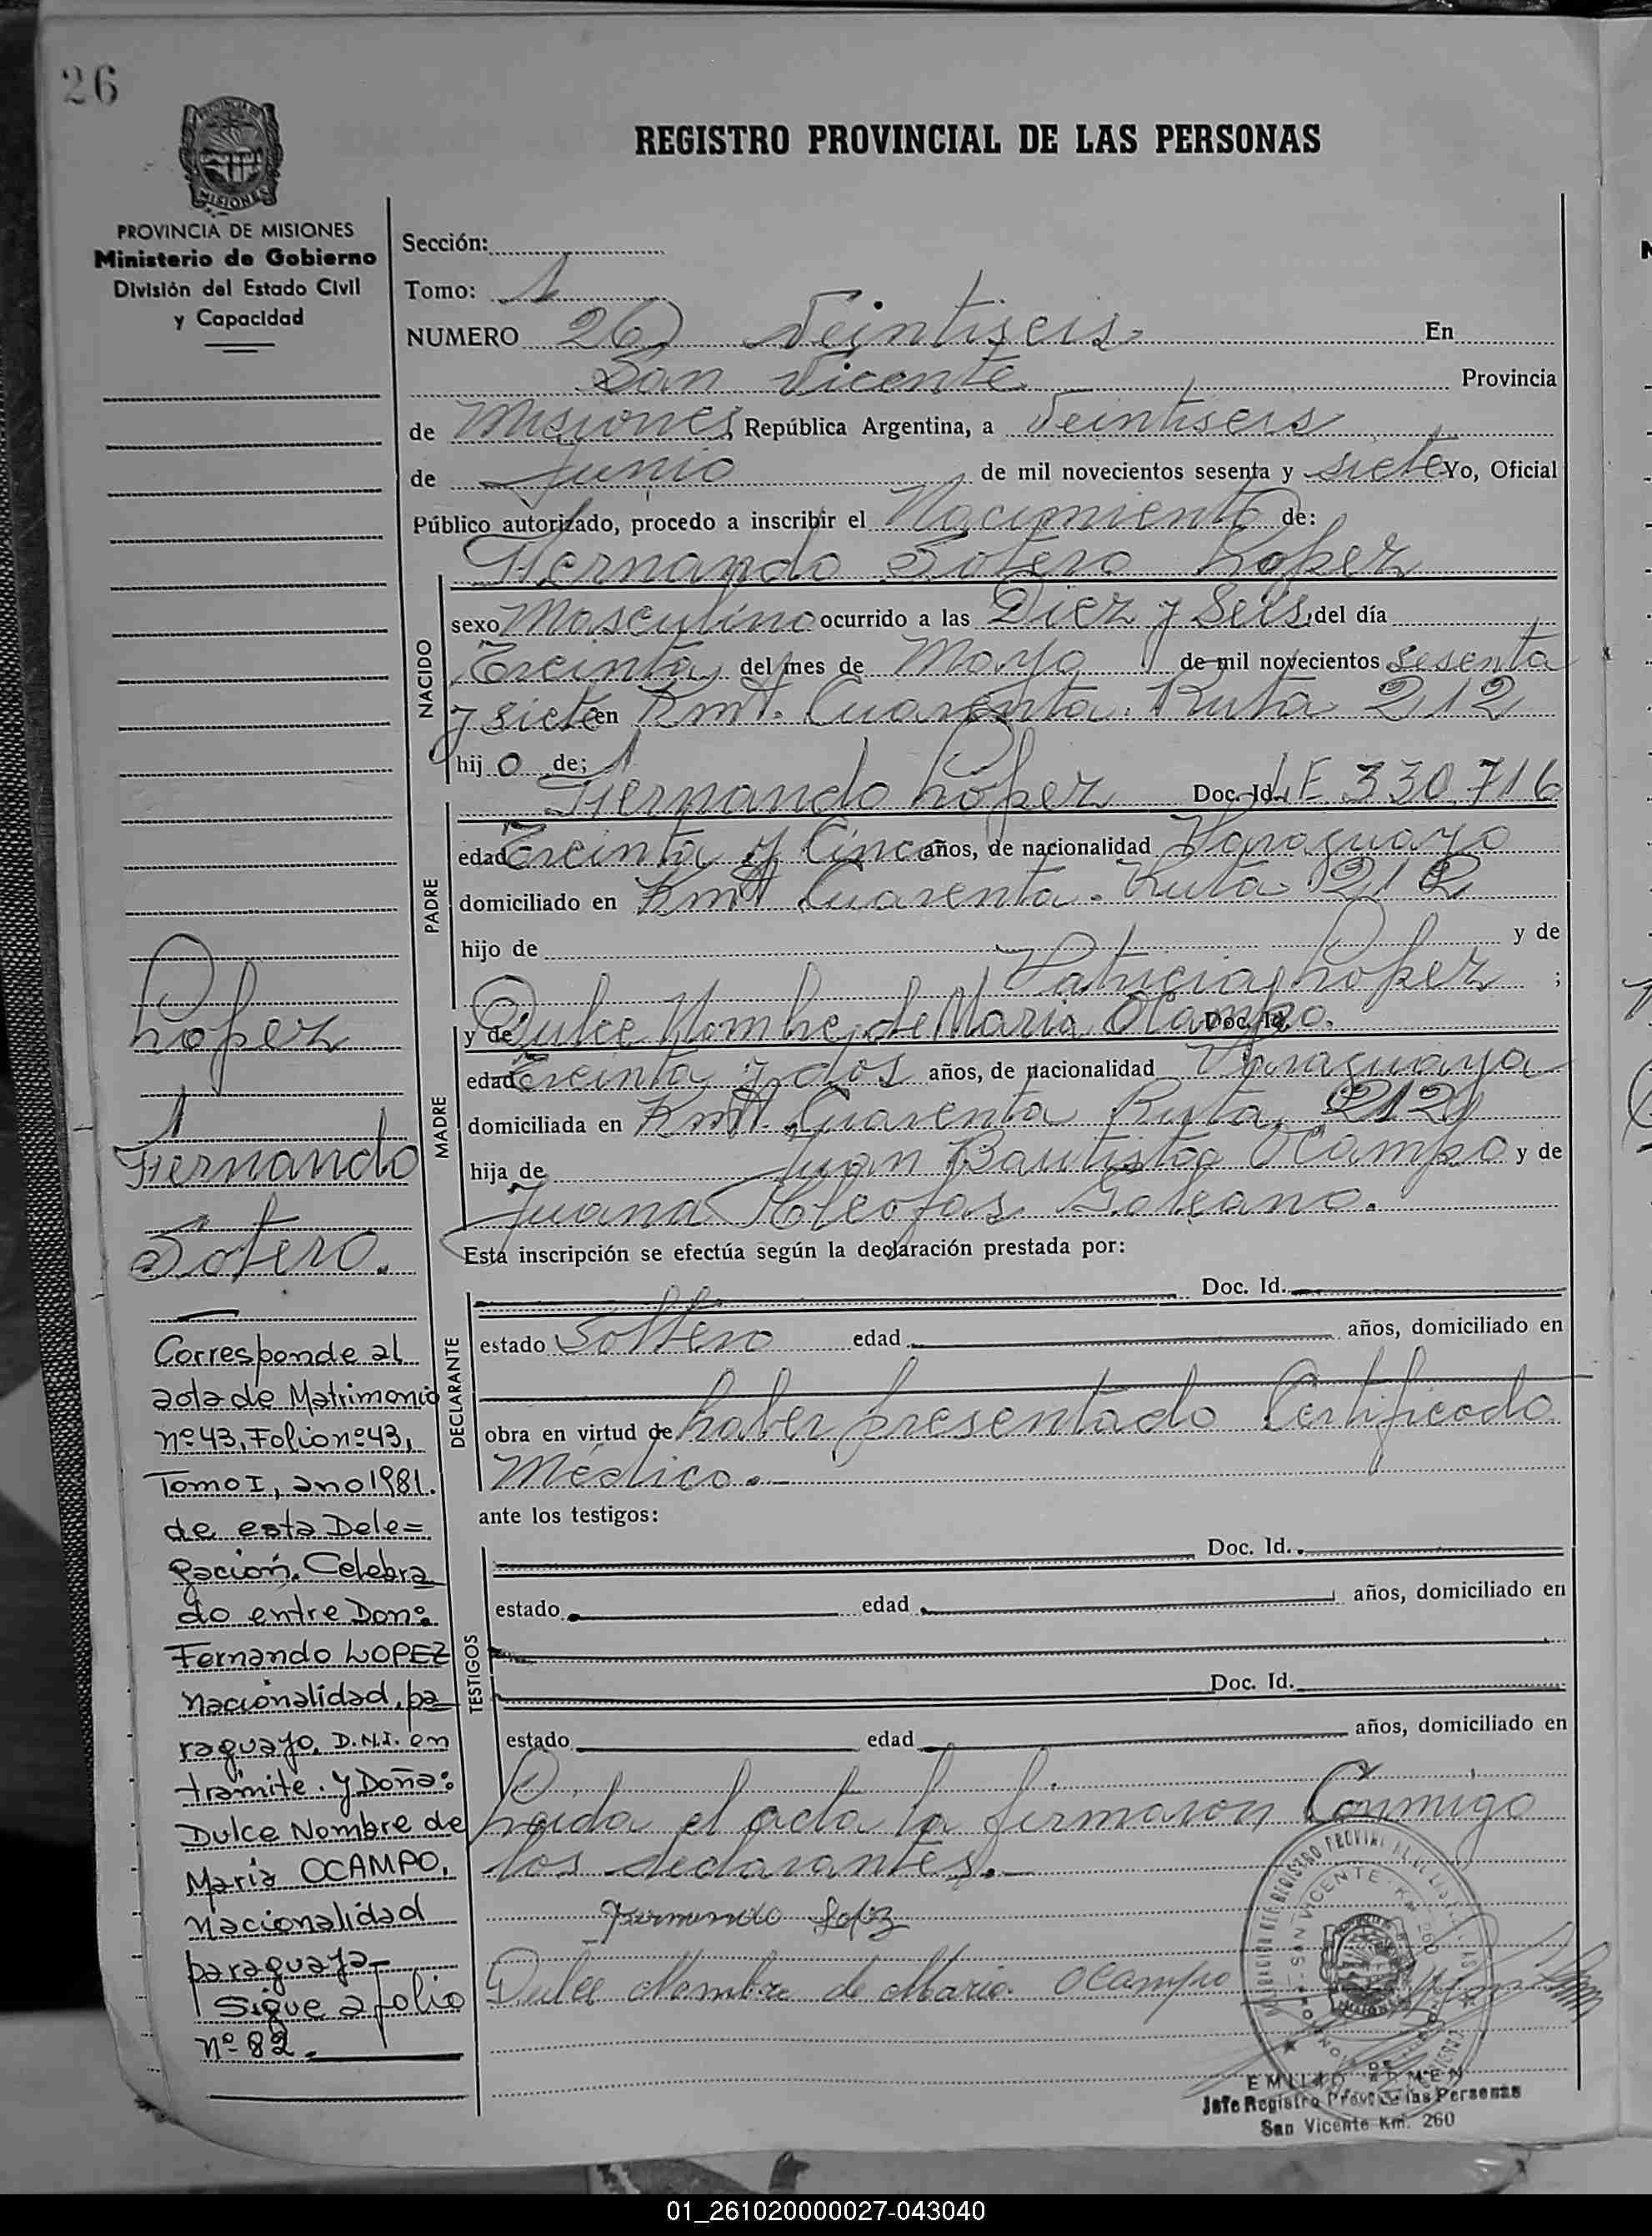 26
REGISTRO PROVINCIAL DE LAS PERSONAS
MISIONES
PROVINCIA DE MISIONES
Ministerio de Gobierno
División del Estado Civil
y Capacidad
Sección:
Tomo: 1
NUMERO 26 Veintiseis En
San Vicente Provincia
de Misiones República Argentina, a Veintiseis
de Junio de mil novecientos sesenta y siete Yo, Oficial
Público autorizado, procedo a inscribir el Nacimiento de:
Fernando Sotero Lopez
NACIDO
sexo Masculino ocurrido a las Diez y Seis del día
Treinta del mes de Mayo de mil novecientos sesenta
y siete en Kmt. Cuarenta. Ruta 212
hijo de;
PADRE
Fernando Lopez Doc. Id. LE 330.716
edad Treinta y Cinco años, de nacionalidad Paraguayo
domiciliado en Kmt Cuarenta. Ruta 212
hijo de y de
Patricia Lopez ;
MADRE
y de Dulce Nombre de Maria Ocampo. Doc. Id.
edad Treinta y dos años, de nacionalidad Paraguaya
domiciliada en Kmt. Cuarenta Ruta 212
hija de Juan Bautista Ocampo y de
Juana Kleofas Goleano.
Esta inscripción se efectúa según la declaración prestada por:
DECLARANTE
Doc. Id.
estado Soltero edad años, domiciliado en
obra en virtud de haber presentado Certificado
Médico.
ante los testigos:
TESTIGOS
Doc. Id.
estado edad años, domiciliado en
Doc. Id.
estado edad años, domiciliado en
Leida el acta la firmaron Conmigo
los declarantes.
Fernando Lopez
Dulce Nombre de Maria Ocampo
Lopez
Fernando
Sotero.
Corresponde al
acta de Matrimonio
nº 43, Folio nº 43,
Tomo I, año 1981.
de esta Dele=
gación. Celebra
do entre Don:
Fernando LOPEZ
nacionalidad, pa
raguayo, D.N.I. en
trámite. y Doña:
Dulce Nombre de
María OCAMPO,
nacionalidad
paraguaya
Sigue a folio
nº 82.
SAN VICENTE - Km 260
Jefe Registro Prov. de las Personas
San Vicente Km. 260
01_261020000027-043040